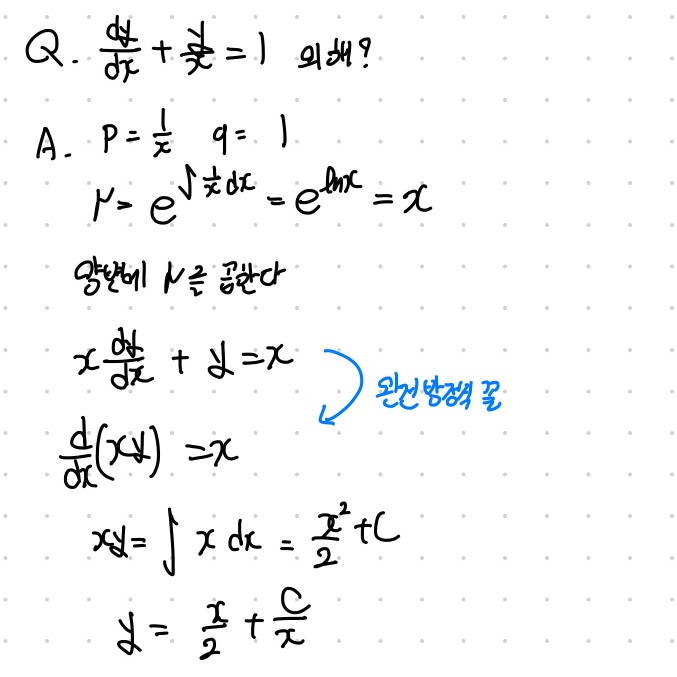 Q. dy/dx + y/x = 1 의 해?
A. P = 1/x q = 1
μ = e^∫1/x dx = e^lnx = x
양변에 μ를 곱한다
x dy/dx + y = x
완전방정식 꼴
d/dx (xy) = x
xy = ∫ x dx = x²/2 + C
y = x/2 + C/x